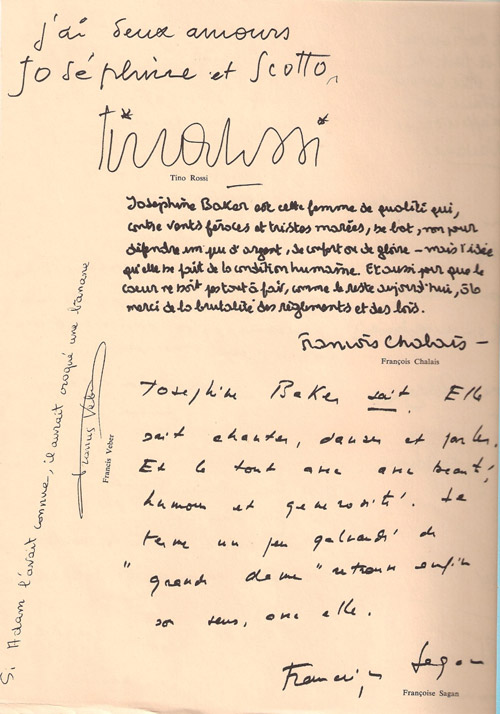 j'ai deux amours
Joséphine et Scotto
Tino Rossi
Tino Rossi
Joséphine Baker est cette femme de qualité qui,
contre vents féroces et tristes marées, se bat, non pour
défendre un peu d'argent, de confort ou de gloire - mais l'idée
qu'elle se fait de la condition humaine. Et aussi pour que le
coeur ne soit pas tout à fait, comme le reste aujourd'hui, à la
merci de la brutalité des règlements et des lois.
François Chalais -
François Chalais
Joséphine Baker sait. Elle
sait chanter, danser et parler.
Et le tout avec beauté,
humour et générosité. Le
terme un peu galvaudé de
"grande dame" retrouve enfin
son sens, avec elle.
Françoise Sagan
Françoise Sagan
Si Adam l'avait connue, il aurait croqué une banane
Francis Veber
Francis Veber